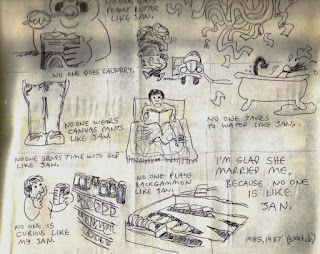 NO ONE EATS
PEANUT BUTTER
LIKE JAN.
NO ONE DOES LAUNDRY,
NO ONE WEARS
CANVAS PANTS
LIKE JAN
NO ONE TAKES
TO WATER LIKE JAN.
NO ONE SPENDS TIME WITH GOD
LIKE JAN.
NO ONE PLAYS
BACKGAMMON
LIKE JAN.
NO ONE IS
CURIOUS LIKE
MY JAN.
I'M GLAD SHE
MARRIED ME.
BECAUSE NO ONE
IS LIKE
JAN.
1985, 1987 (sketch)